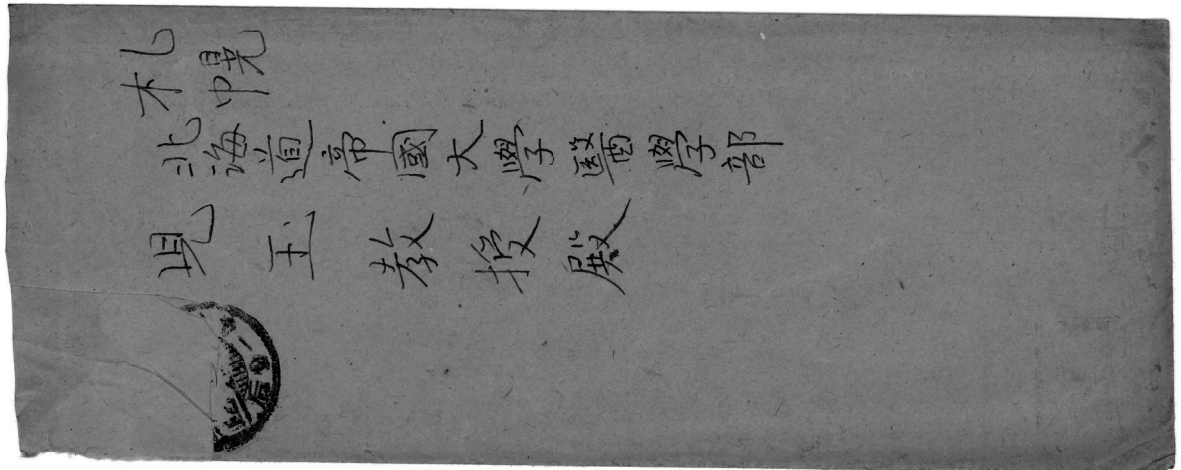 札幌
北海道帝國大學醫學部
児玉教授殿